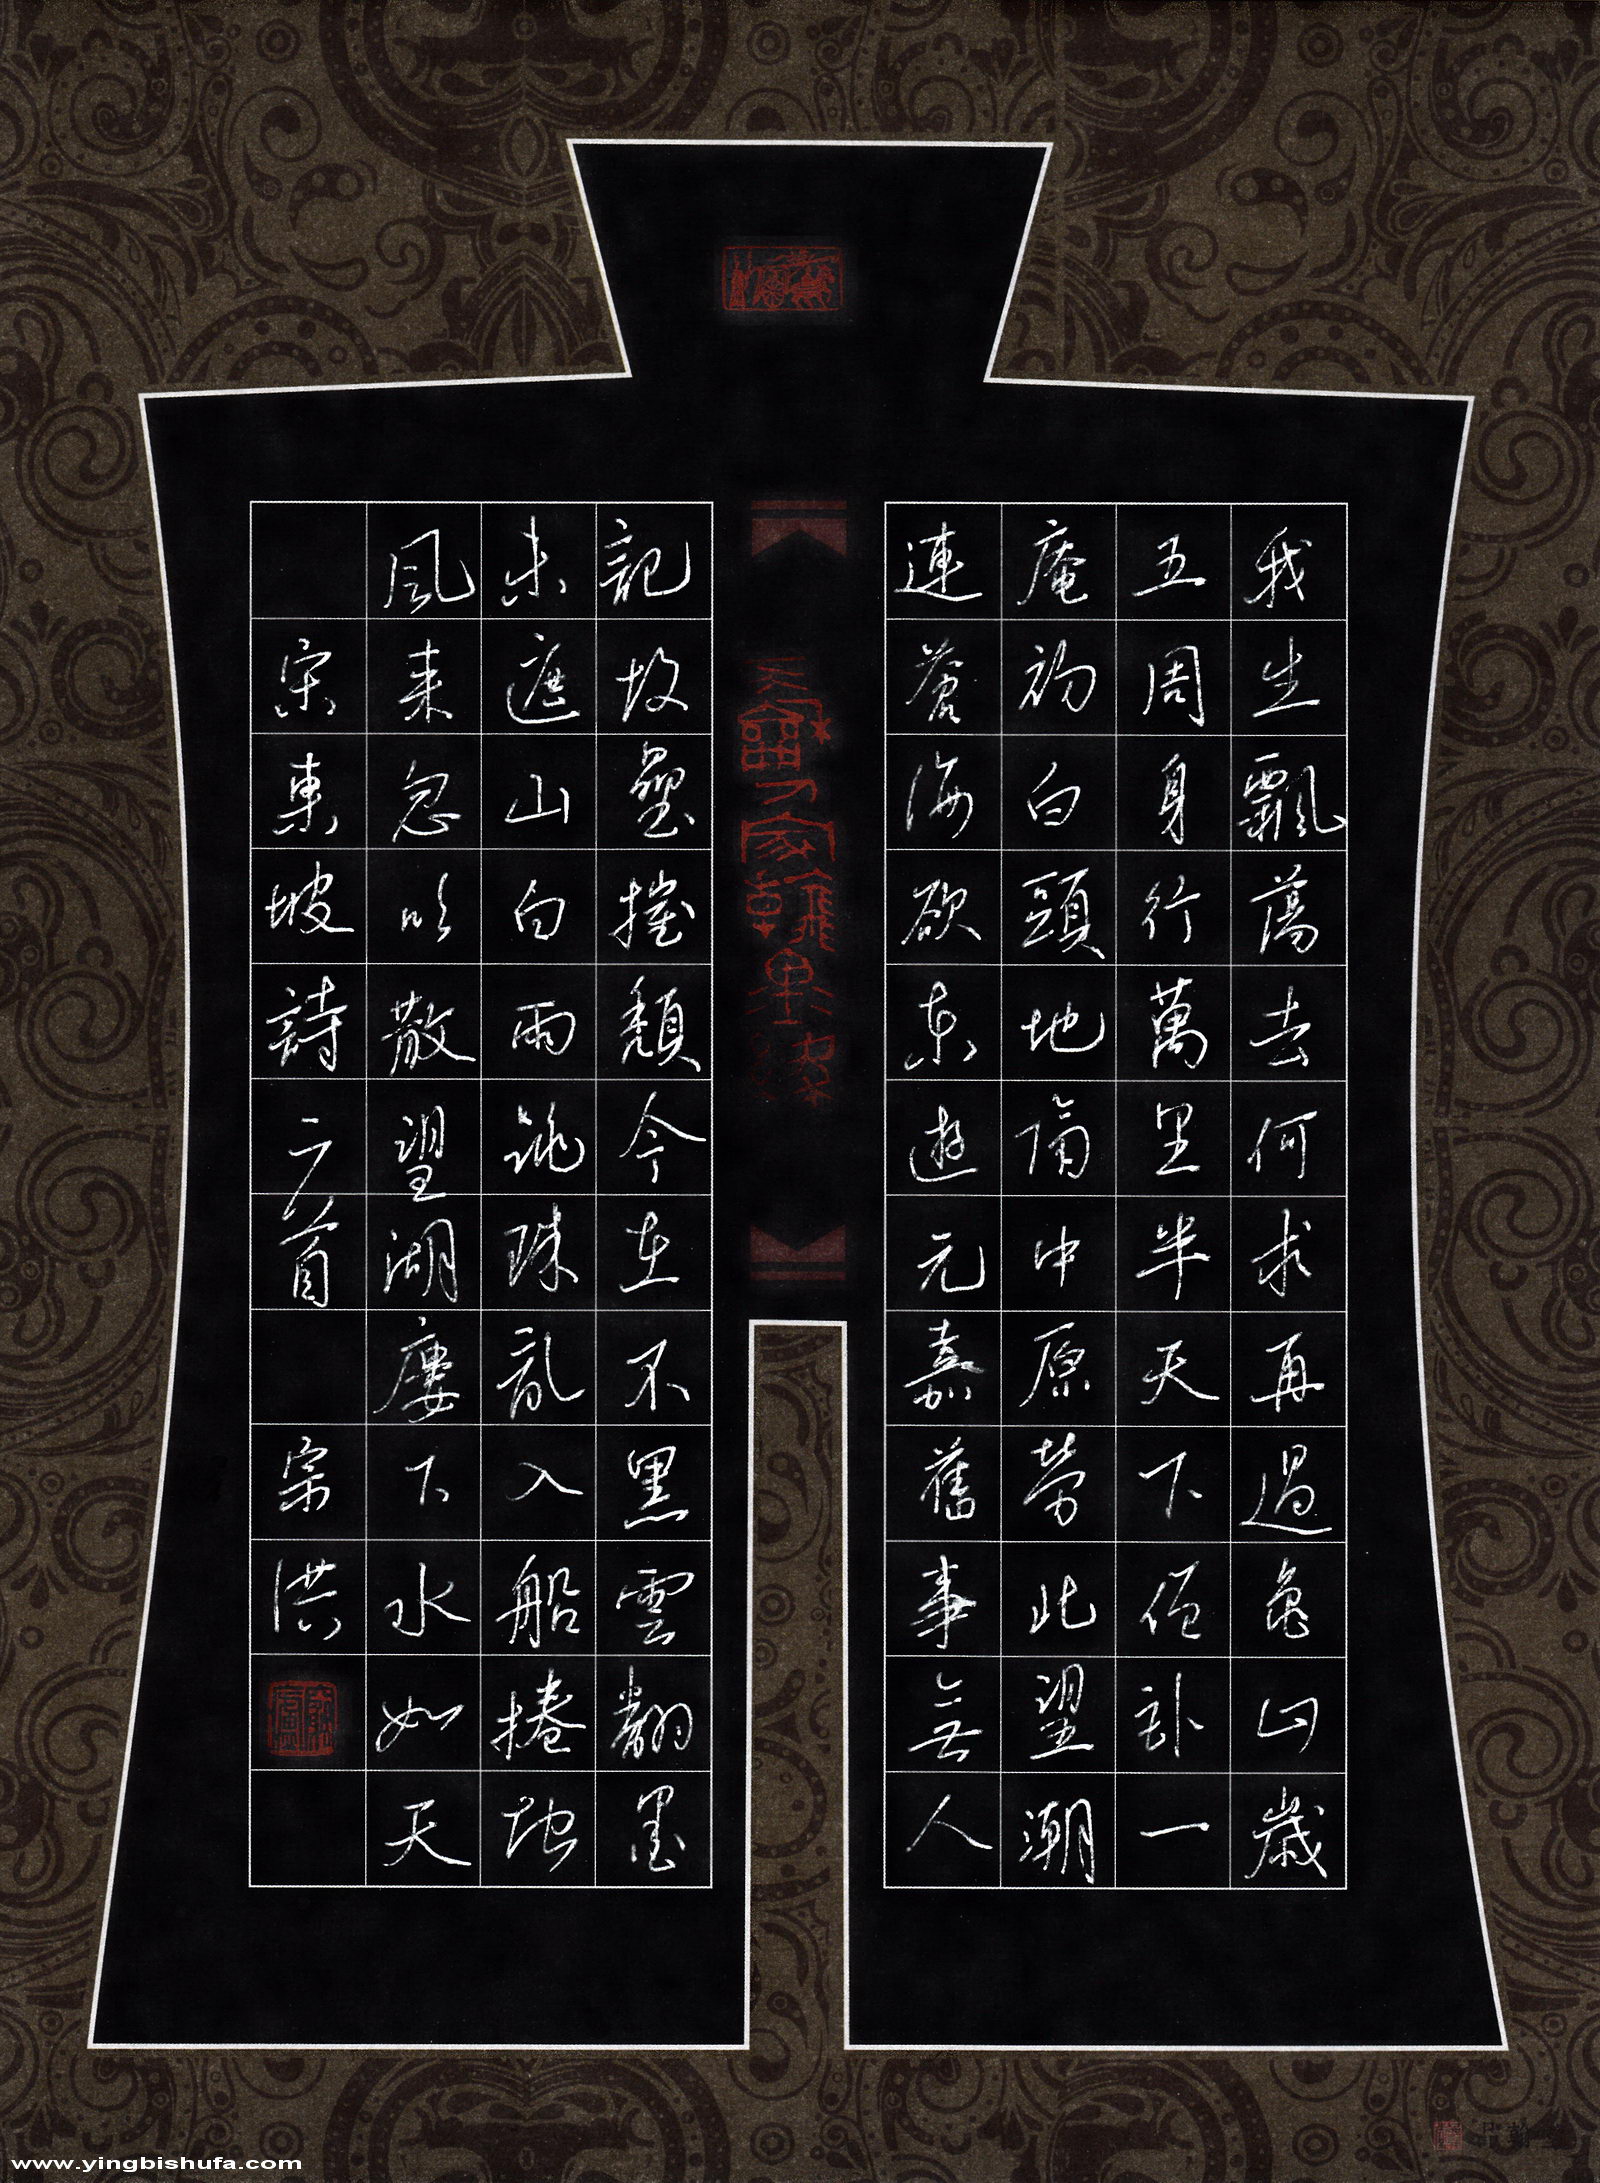 我生飄蕩去何求再過龜山歲
五周身行萬里半天下僧卧一
庵初白頭地隔中原勞北望潮
連蒼海欲東遊元嘉舊事無人
記故壘摧頹今在不黑雲翻墨
未遮山白雨跳珠亂入船捲地
風來忽吹散望湖樓下水如天
宋東坡詩二首 宗洪
www.yingbishufa.com